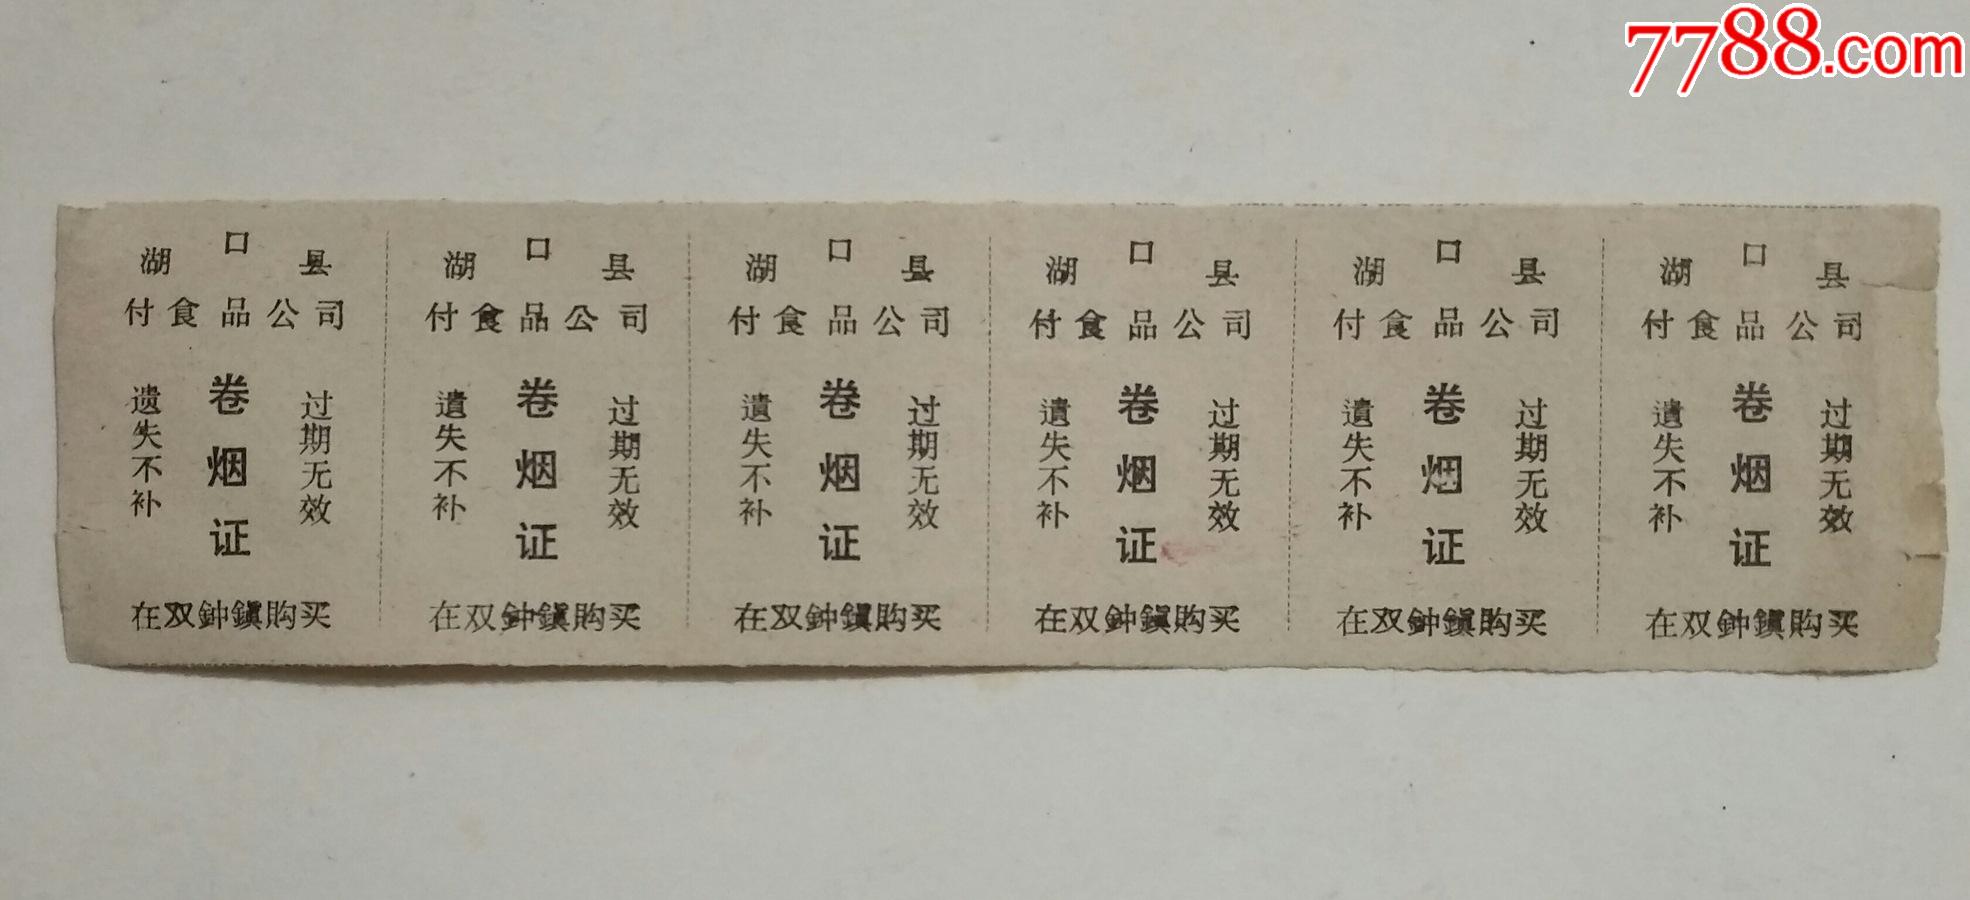 7788.com
湖口县
付食品公司
卷烟证
过期无效
遗失不补
在双鈡鎭购买
湖口县
付食品公司
卷烟证
过期无效
遺失不补
在双鈡鎭购买
湖口县
付食品公司
卷烟证
过期无效
遺失不补
在双鈡鎭購买
湖口县
付食品公司
卷烟证
过期无效
遺失不补
在双鈡鎭購买
湖口县
付食品公司
卷烟证
过期无效
遺失不补
在双鈡鎭購买
湖口县
付食品公司
卷烟证
过期无效
遺失不补
在双鈡鎭購买